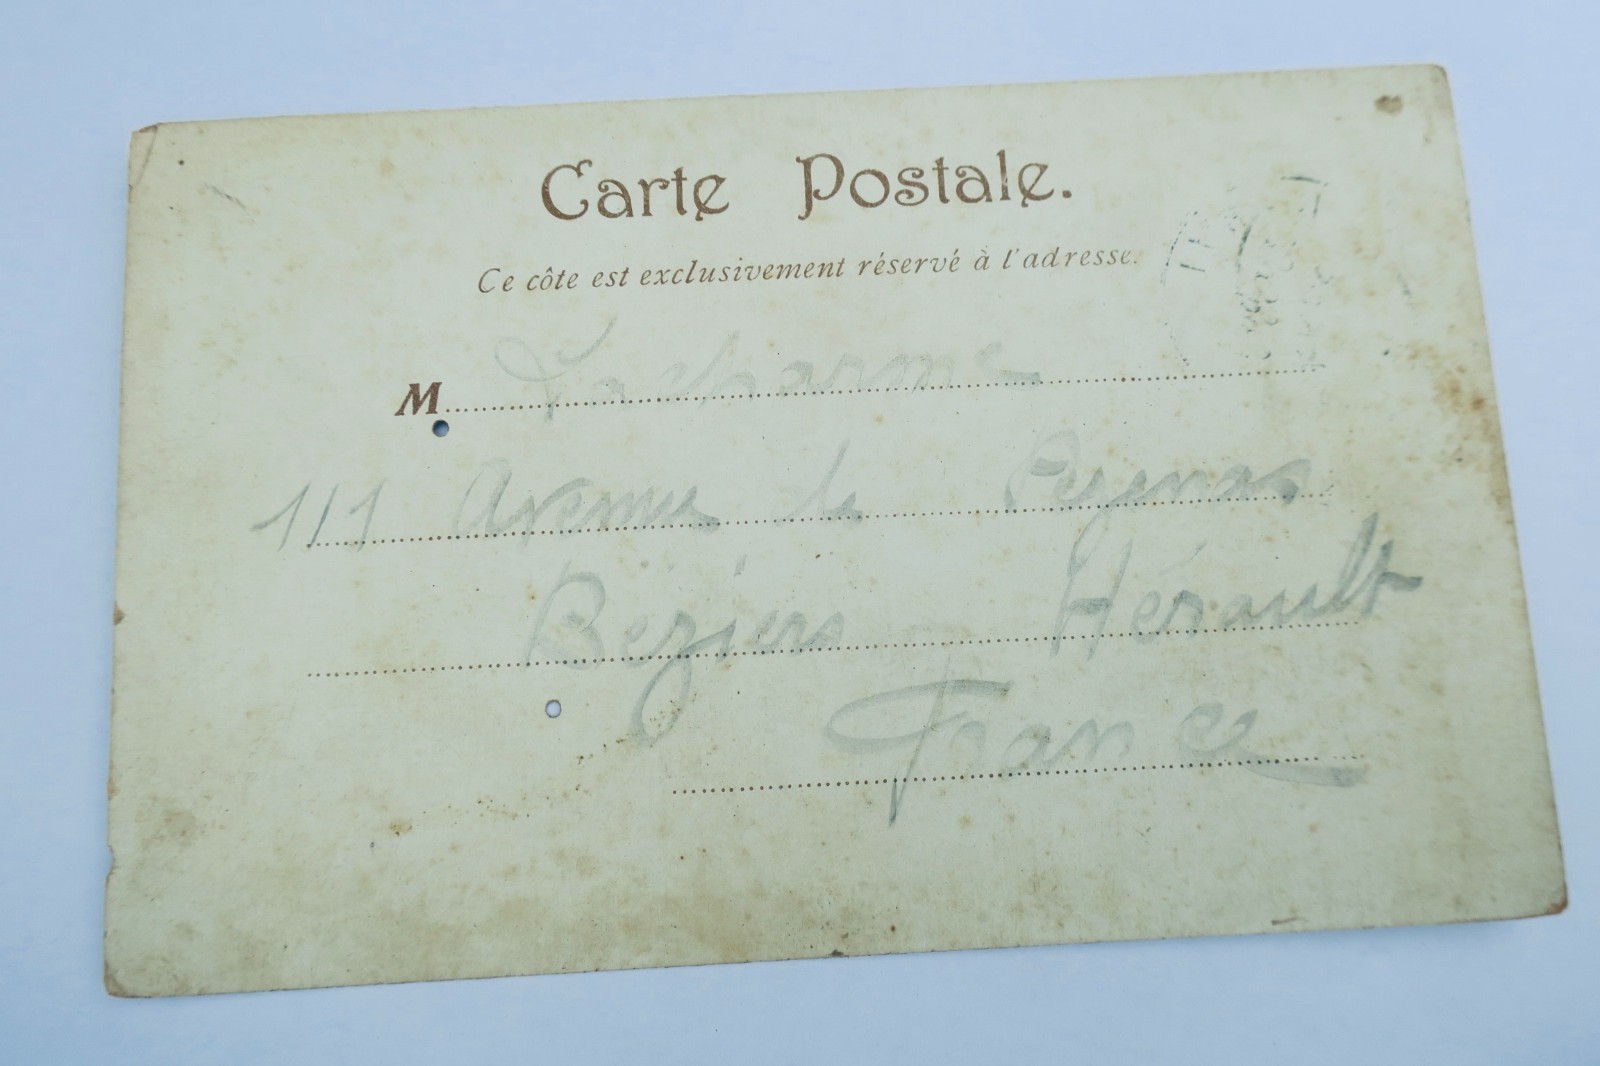 Carte Postale.
Ce côte est exclusivement réservé à l'adresse.
M Lacharme
111 Avenue de Pezenas
Beziers Hérault
France